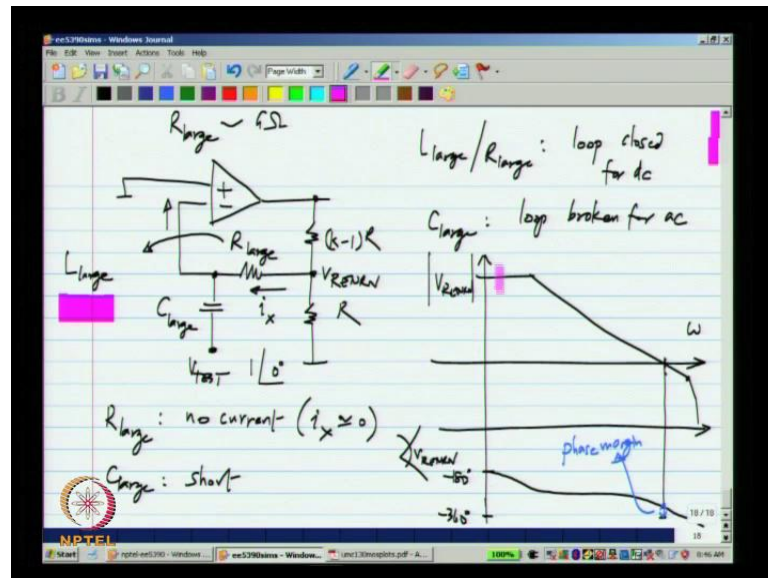 ee5390sims - Windows Journal
File Edit View Insert Actions Tools Help
Page Width
B I
R_large ~ GΩ
+
-
(k-1)R
V_RETURN
R_large
L_large
C_large
i_x
R
V_TEST 1∠0°
R_large : no current (i_x ≃ 0)
C_large : short
L_large / R_large : loop closed for dc
C_large : loop broken for ac
|V_RETURN|
ω
∠V_RETURN
phase margin
-180°
-360°
18 / 18
18
NPTEL
Start
nptel-ee5390 - Windows ...
ee5390sims - Window...
umc130mosplots.pdf - A...
100%
8:46 AM